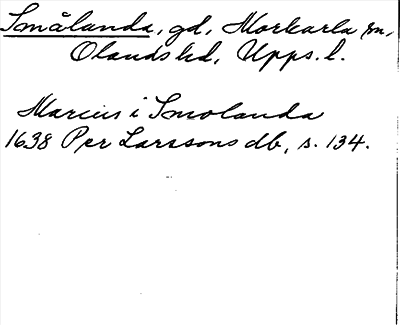 Smålanda, gd, Morkarla sn,
Olands hd, Upps. l.
Marcus i Smolanda
1638 Per Larssons db, s. 134.